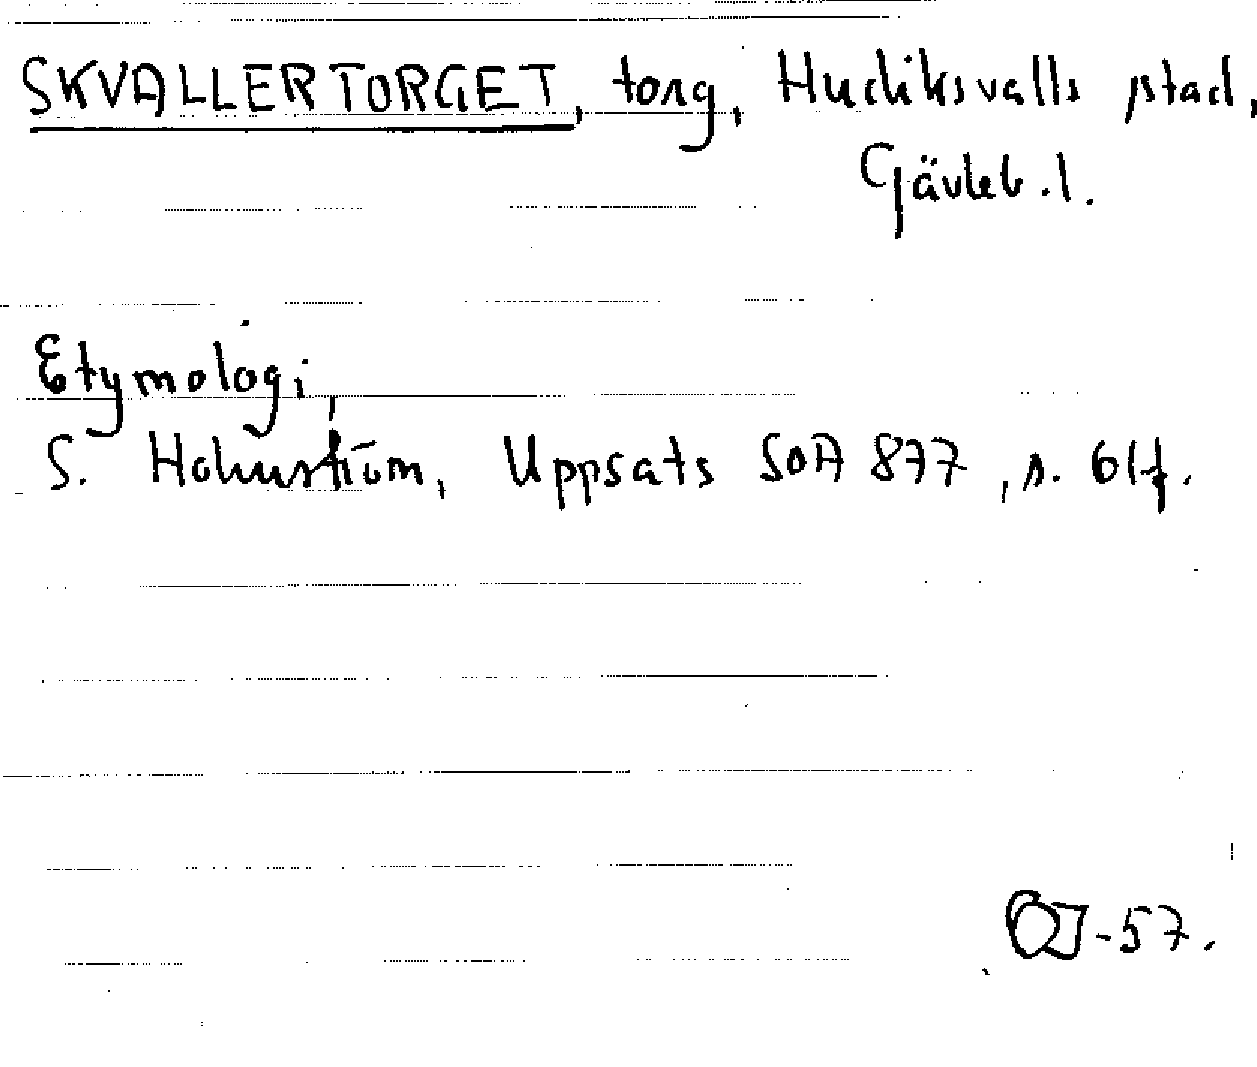 SKVALLERTORGET, torg, Hudiksvalls stad,
Gävleb. l.
Etymologi
S. Holmström, Uppsats SOA 877, s. 61f.
-57.